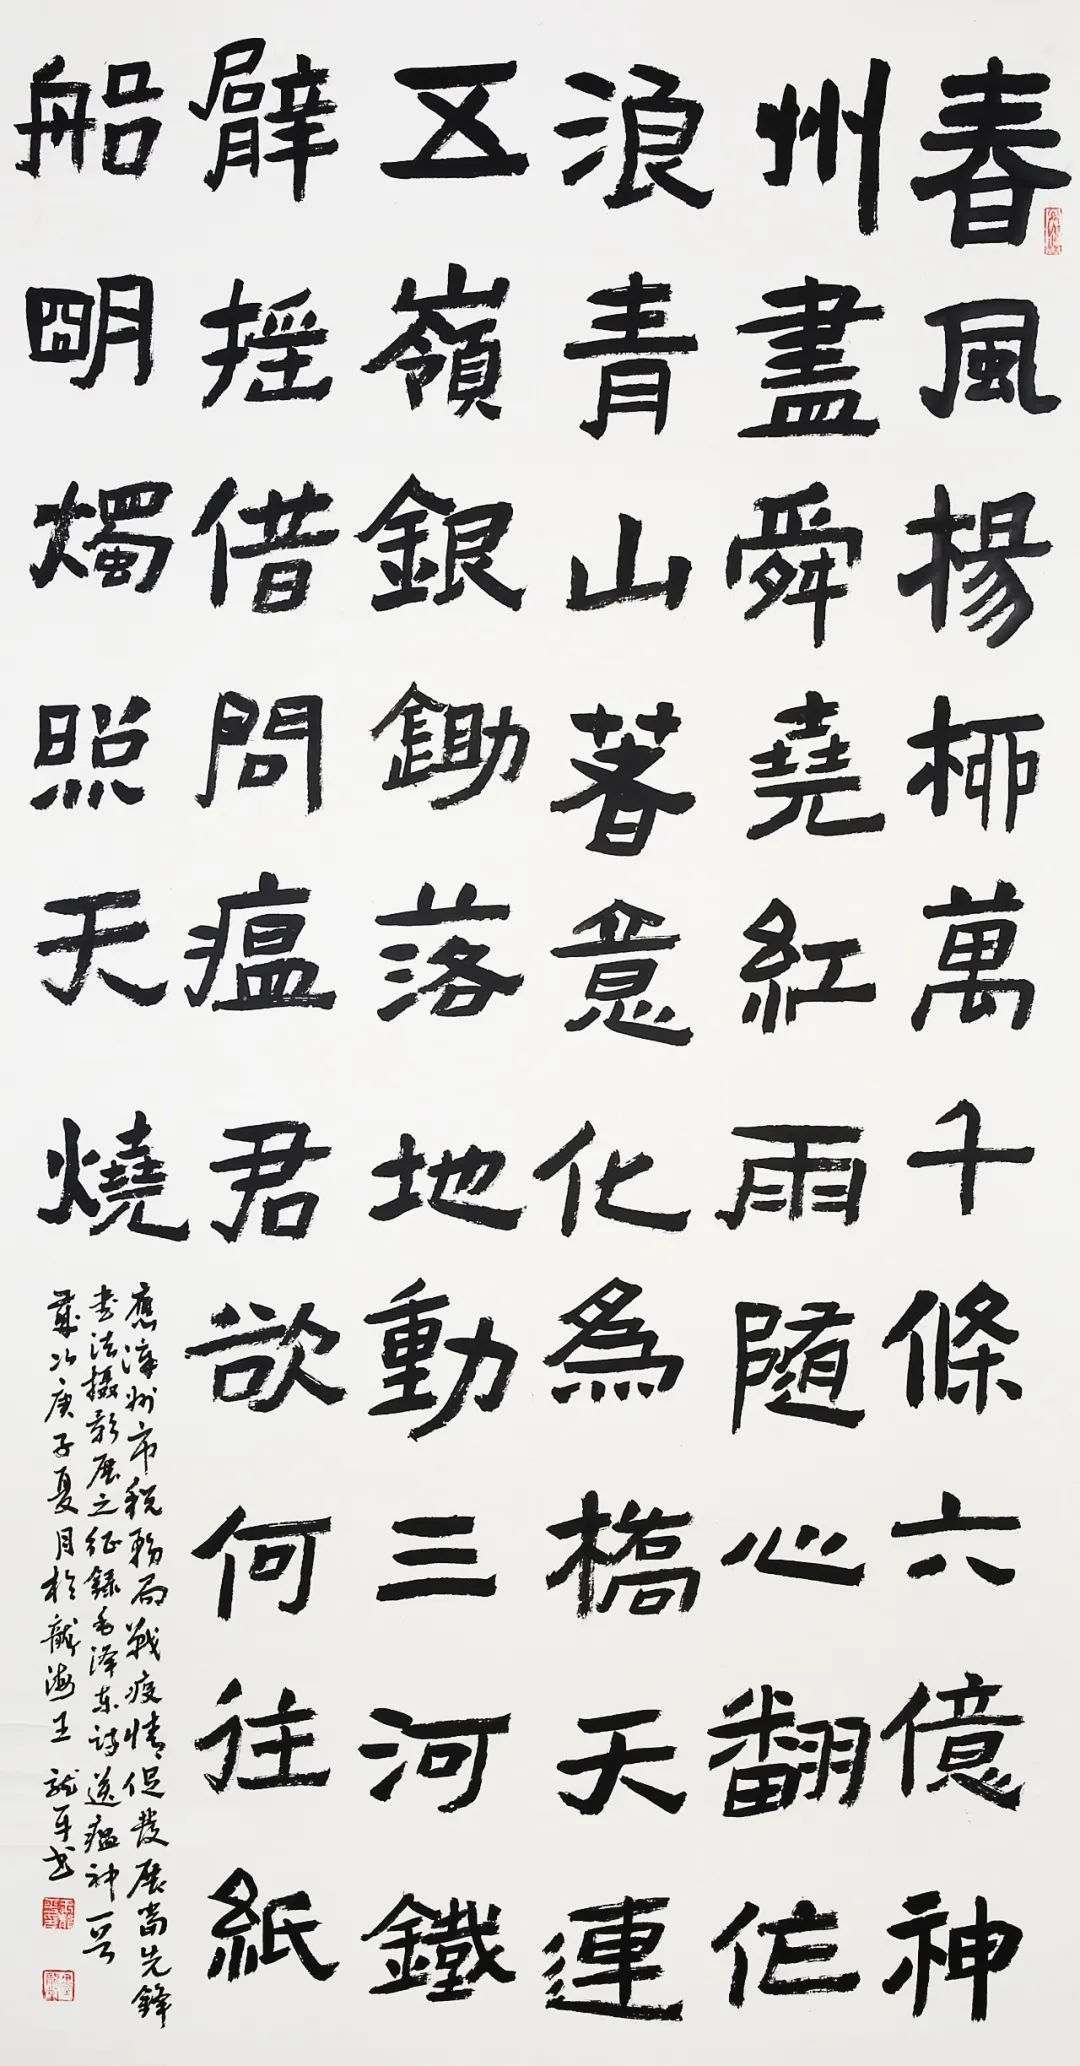 春風揚柳萬千條六億神
州盡舜堯紅雨隨心翻作
浪青山著意化為橋天連
五嶺銀鋤落地動三河鐵
臂摇借問瘟君欲何往紙
船明燭照天燒
應漳州市税務局戰疫情促發展當先鋒
書法摄影展之征錄毛澤东诗送瘟神一首
歲次庚子夏月於龍海王龍平书